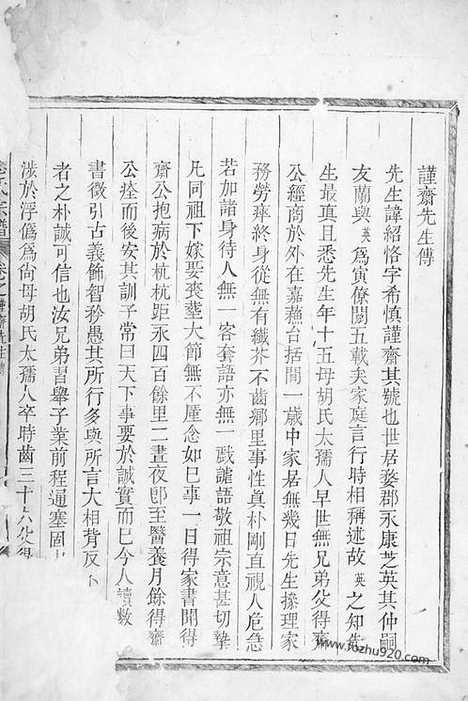 謹齋先生傳
先生諱紹恪字希慎謹齋其號也世居婺郡永康芝英其仲嗣
友蘭與英爲寅僚閱五載矣家庭言行時相稱述故英之知先
生最眞且悉先生年十五母胡氏太孺人早世無兄弟父得齋
公經商於外在嘉穐台括間一歲中家居無幾日先生摻理家
務勞瘁終身從無有纖芥不齒鄉里事性眞朴剛直視人危急
若加諸身待人無一客套語亦無一戲謔語敬祖宗意甚切摯
凡同祖下嫁娶喪塟大節無不厪念如巳事一日得家書聞得
齋公抱病於杭杭距永四百餘里二晝夜卽至醫養月餘得齋
公痊而後安其訓子常曰天下事要於誠實而巳今人讀數
書徵引古義飾智矜愚其所行多與所言大相背反
者之朴誠可信也汝兄弟習舉子業前程通塞固
涉於浮僞爲尚母胡氏太孺人卒時齒三十六父得
氏宗譜 卷之
www.fozhu920.com